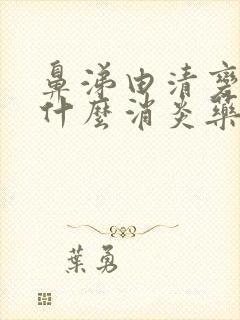 鼻涕由清变
什麼消炎藥
葉勇